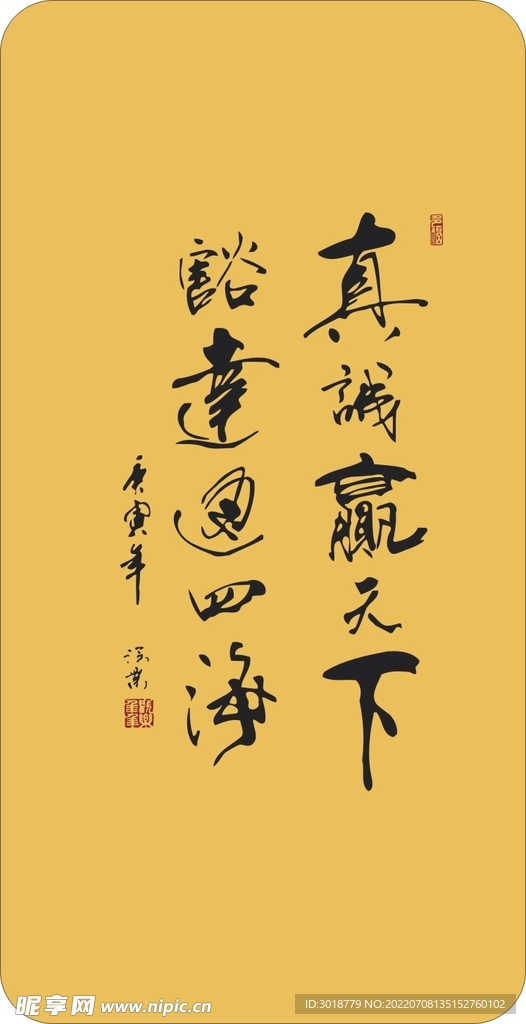 真誠贏天下
豁達通四海
庚寅年
昵享网 www.nipic.cn
ID:3018779 NO:20220708135152760102